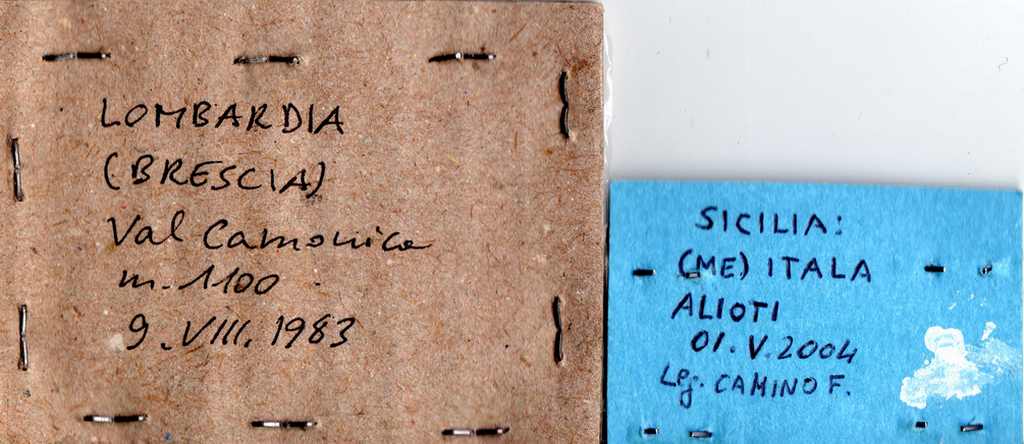 LOMBARDIA
(BRESCIA)
Val Camonica
m. 1100
9. VIII. 1983
SICILIA:
(ME) ITALA
ALIOTI
01. V. 2004
Leg. CAMINO F.